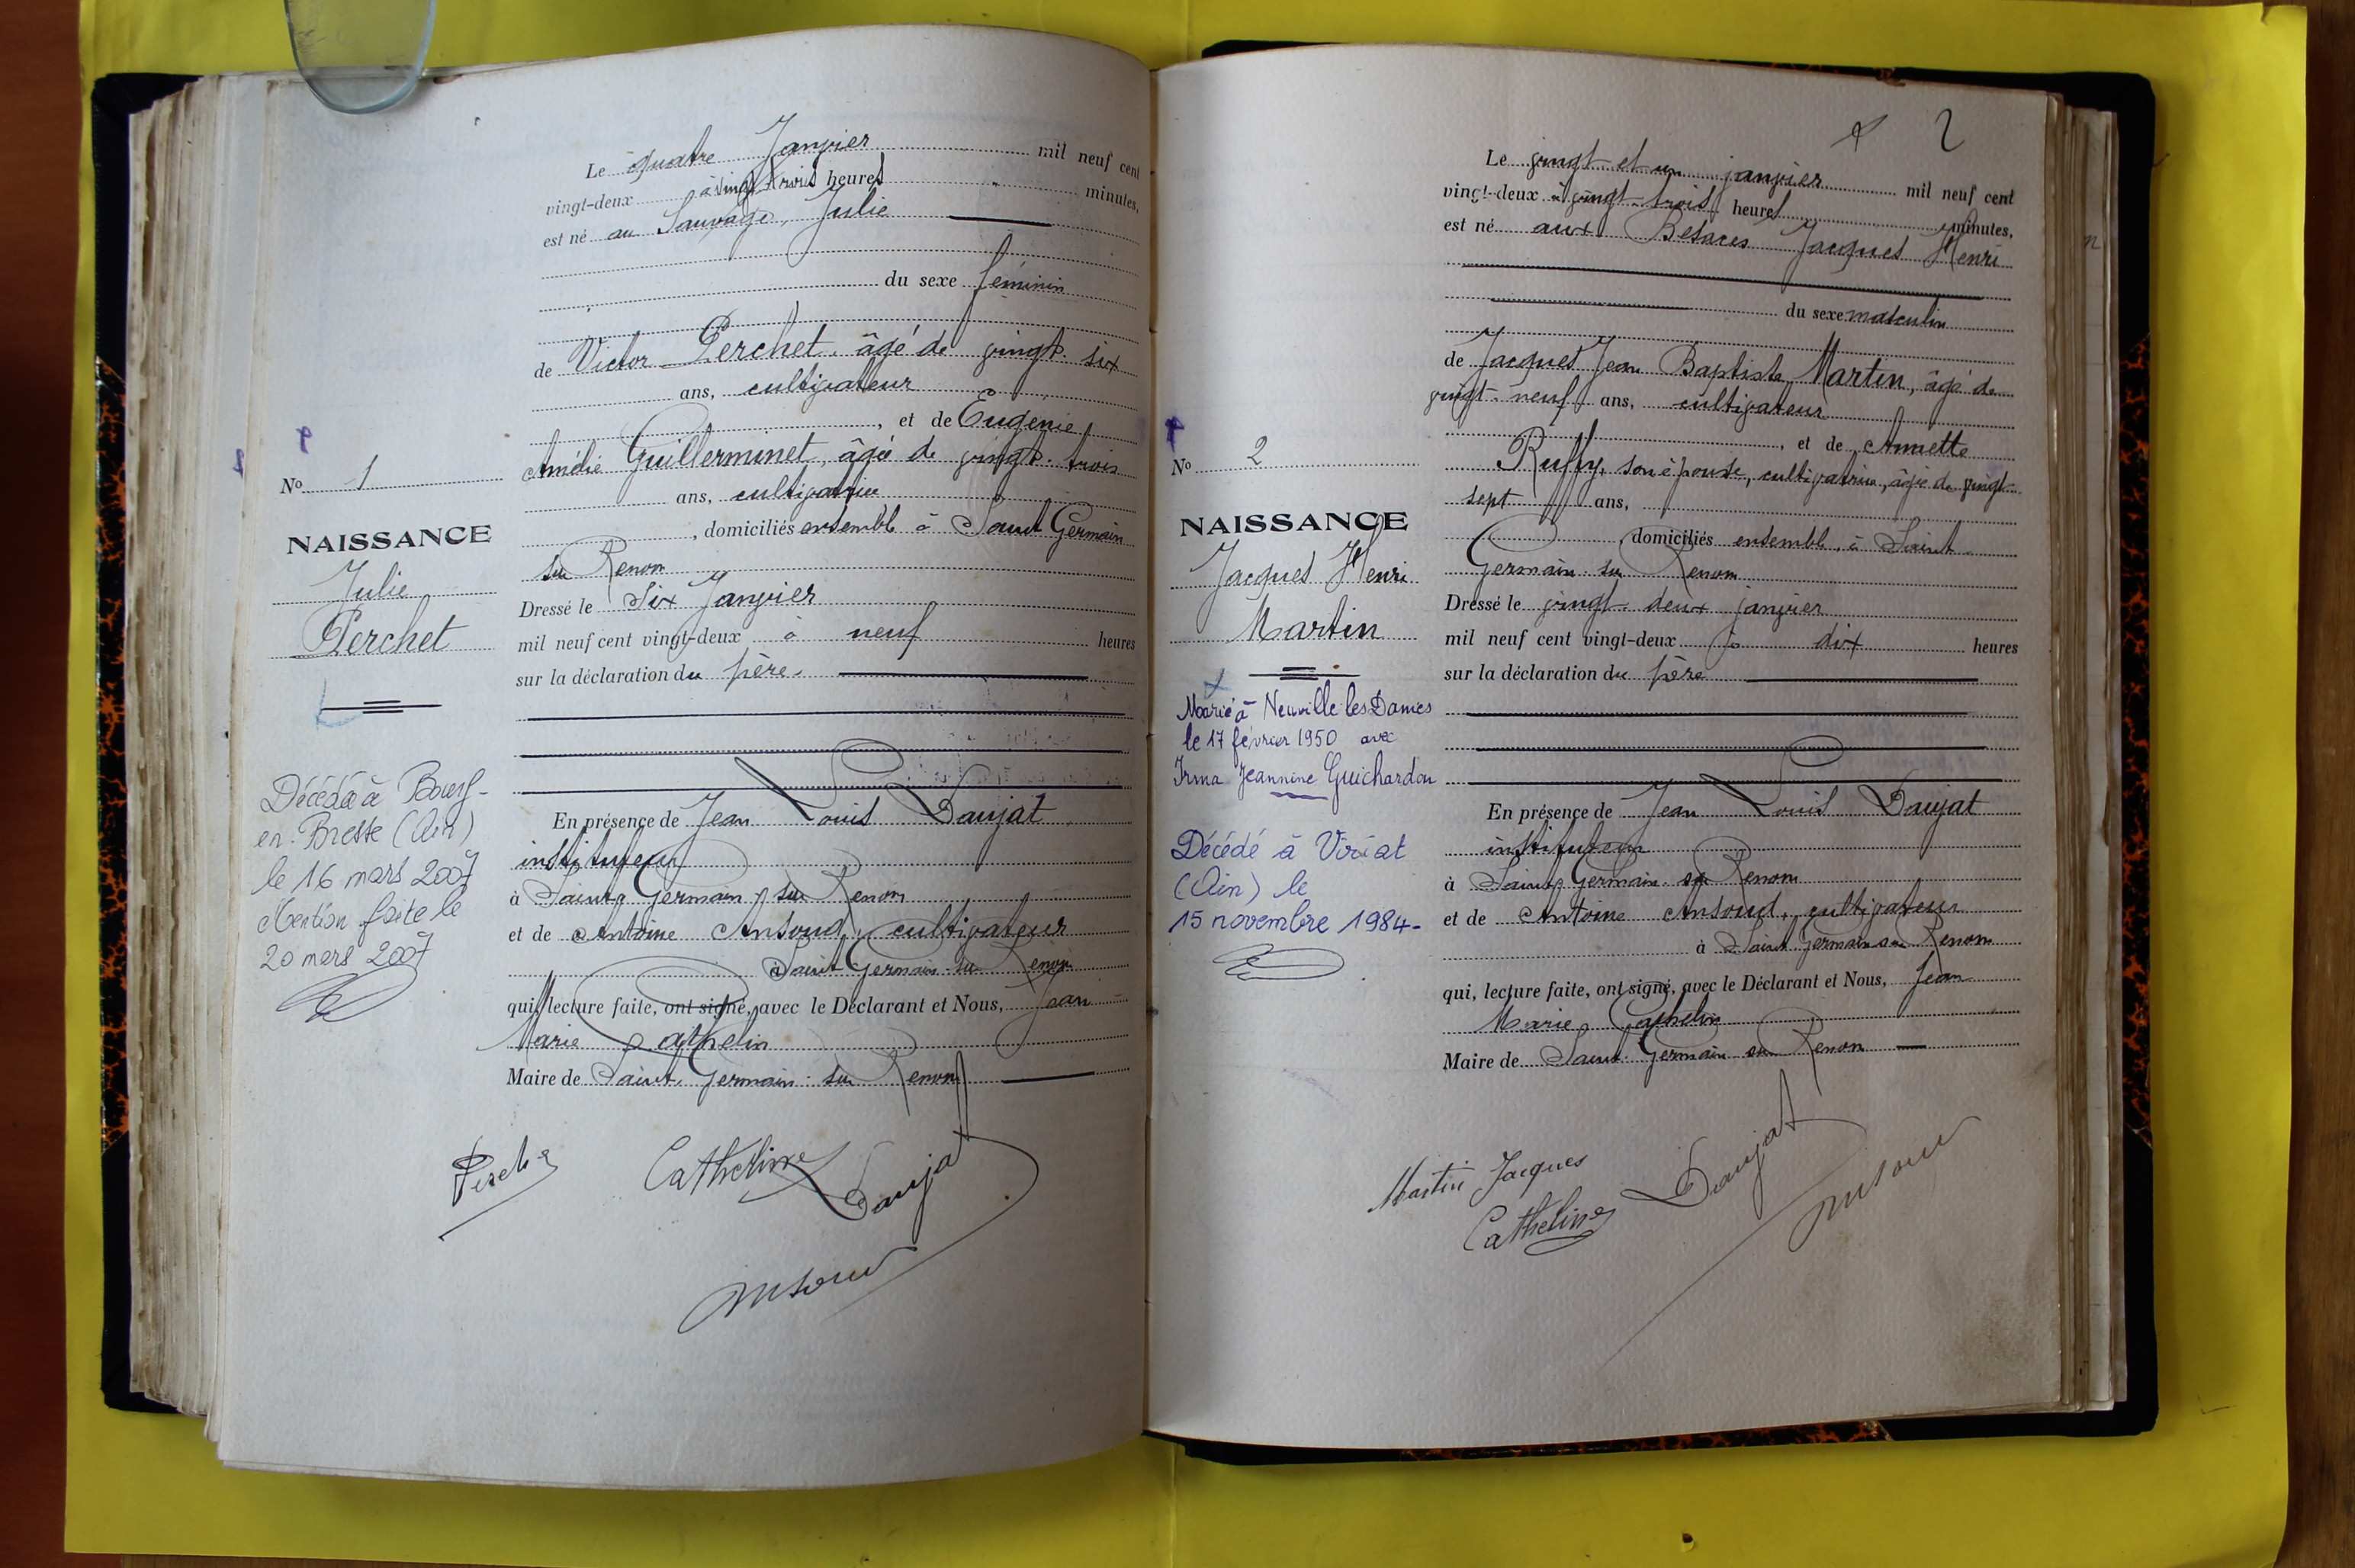 Le quatre Janvier mil neuf cent
vingt-deux à vingt trois heures minutes,
est né au Sauvage, Julie
du sexe féminin
de Victor Perchet, âgé de vingt-six
ans, cultivateur
, et de Eugénie
Amélie Guillerminet, âgée de vingt-trois
ans, cultivatrice
, domiciliés ensemble à Saint Germain
sur Renon
Dressé le Six Janvier
mil neuf cent vingt-deux à neuf heures
sur la déclaration du père.
En présence de Jean Louis Daujat
instituteur
à Saint Germain sur Renon
et de Antoine Ansoud, cultivateur
à Saint Germain sur Renon
qui, lecture faite, ont signé, avec le Déclarant et Nous, Jean
Marie Cathelin
Maire de Saint Germain sur Renon
Cathelin
Daujat
No 1
NAISSANCE
Julie
Perchet
Décédée à Bourg-
en-Bresse (Ain)
le 16 mars 2007
Mention faite le
20 mars 2007
2
Le vingt et un janvier mil neuf cent
vingt-deux à vingt trois heures minutes,
est né aux Besaces Jacques Henri
du sexe masculin
de Jacques Jean Baptiste Martin, âgé de
vingt-neuf ans, cultivateur
, et de Annette
Ruffy, son épouse, cultivatrice, âgée de vingt
sept ans,
, domiciliés ensemble, à Saint
Germain sur Renon
Dressé le vingt-deux janvier
mil neuf cent vingt-deux à dix heures
sur la déclaration du père
En présence de Jean Louis Daujat
instituteur
à Saint Germain sur Renon
et de Antoine Ansoud, cultivateur
à Saint Germain sur Renon
qui, lecture faite, ont signé, avec le Déclarant et Nous, Jean
Marie Cathelin
Maire de Saint Germain sur Renon
Martin Jacques
Cathelin
Daujat
No 2
NAISSANCE
Jacques Henri
Martin
Marié à Neuville les Dames
le 17 février 1950 avec
Irma Jeannine Guichardon
Décédé à Viriat
(Ain) le
15 novembre 1984-